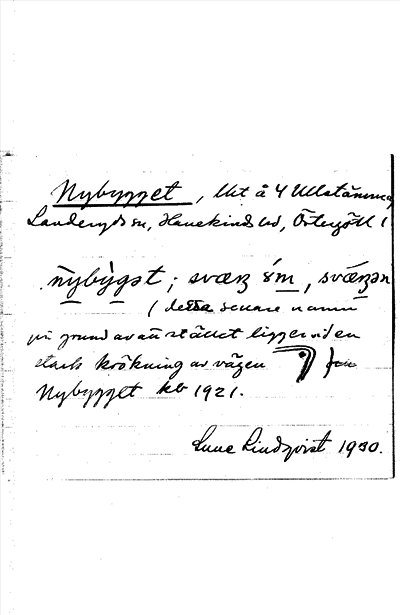 Nybygget, lht å 4 Ullstämma,
Landeryds sn, Hanekinds hd, Östergötl
nybygət; sværŋ, sværŋən
(detta senare namn
på grund av att stället ligger vid en
stark krökning av vägen
Nybygget kb 1921.
Sune Lindqvist 1930.